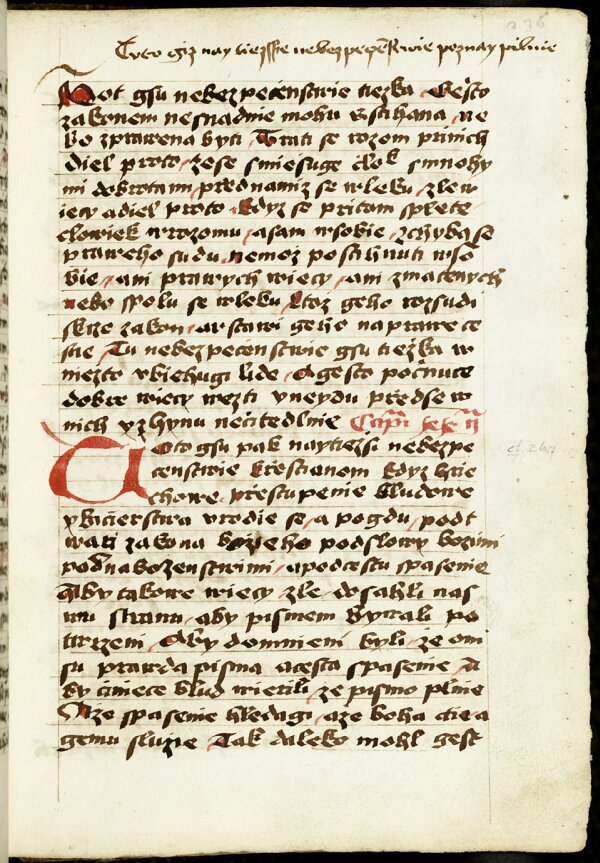 236
Tuto giz nay tiezssie nebezpeczenstwie poznay pilnie
Pot gsu nebezpecenstwie tiezka Gesto
zakonem nesnadnie mohu wstihana ne
bo zprawena byti Trati se rozom prinich
diel proto zese smiesuge clok smnohy
mi dobrotami przednamiz se wleku zlew
iecy adiel proto kdyz se pritom splete
clowiek wrozomu asam wsobie zchybase
praweho sudu nemoz postihnuti wso
bie ani prawych wiecy ani zmatenych
nebo spolu se wleku ktoz geho rozsudi
skrze zakon a wstawi gehe naprawe ce
stie Tu nebezpecenstwie gsu tiezka w
niezto vbiehugi lide A gesto pocnuce
dobre wiecy wezti vneydu przedse w
nich vzhynu necitedlnie
Toto gsu pak naytiezsi nebezpe
censtwie krestianom kdyz lzie
chowe prestupenie bludowe
pkacierstwa vrodie se a pogdu podt
wati zakona bozieho podslowy bozimi
pod nabozenstwimi apodcestu spasenie
Aby takowe wiecy zle dosahli nas
wu stranu aby pismem bywali po
twrzeni Aby domnieni byli ze om
su prawda pisma acesta spasenie A
by cinece blud wierili ze pismo plnie
Aze spasenie hledagi aze boha ctie a
gemu sluzie Tak daleko mohl gest
cf. 267